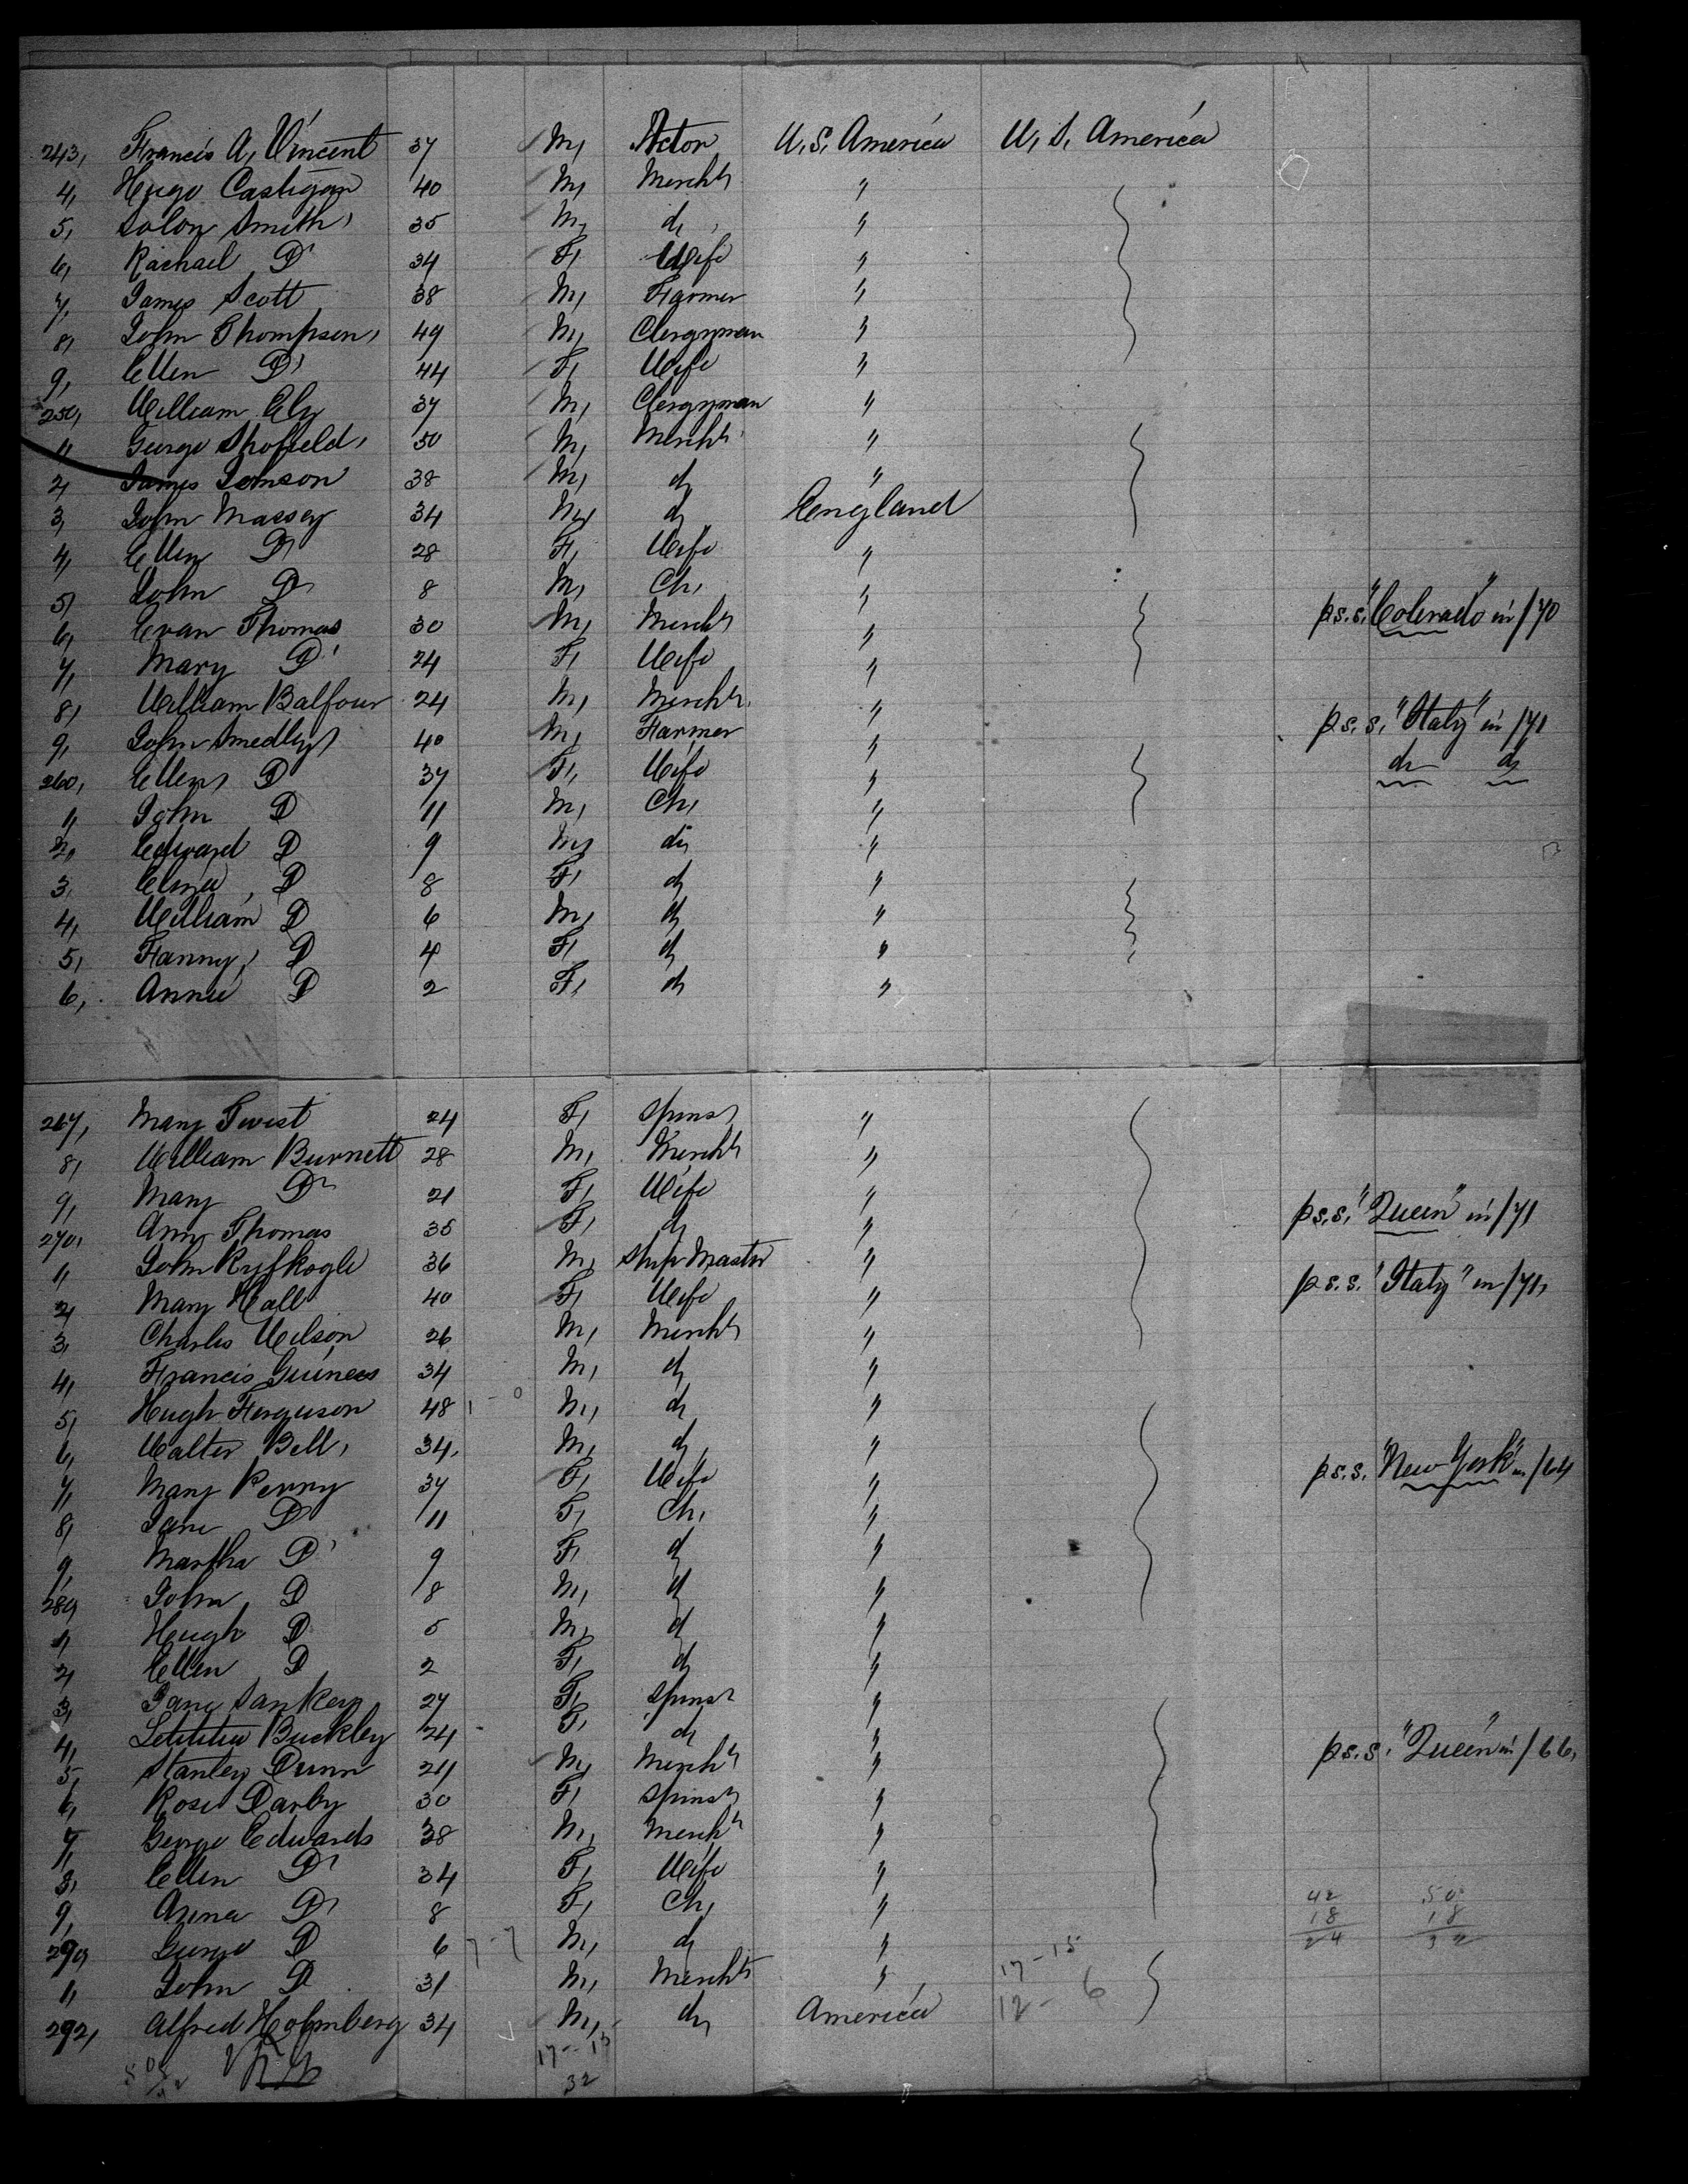 243, Francis A, Vincent 37 M, Actor U.S. America U, S, America
4, Hugo Castigan 40 M, Mercht "
5, Solon Smith, 35 M, do "
6, Rachael Do 34 F, Wife "
7, James Scott 38 M, Farmer "
8, John Thompson, 49 M, Clergyman "
9, Ellen Do 44 F, Wife "
250, William Ely 37 M, Clergyman "
1, George Shofield, 50 M, Mercht "
2, James Jomson 38 M, do "
3, John Massey 34 M, do England
4, Ellen Do 28 F, Wife "
5, John Do 8 M, Ch, "
6, Evan Thomas 30 M, Mercht " p.s.s. "Colorado" in /70
7, Mary Do 24 F, Wife "
8, William Balfour 24 M, Mercht "
9, John Smedley 40 M, Farmer " p.s.s. "Italy" in /71
260, Ellen, Do 37 F, Wife " do do
1, John Do 11 M, Ch, "
2, Edward Do 9 M, do "
3, Eliza Do 8 F, do "
4, William Do 6 M, do "
5, Fanny, Do 4 F, do "
6, Annie Do 2 F, do "
267, Mary Twist 24 F, Spinsr "
8, William Burnett 28 M, Mercht "
9, Mary Do 21 F, Wife "
270, Ann Thomas 35 F, do " p.s.s. "Queen" in /71
1, John Ryfkogle 36 M, Ship Master "
2, Mary Hall 40 F, Wife " p.s.s. "Italy" in /71,
3, Charles Wilson 26 M, Mercht "
4, Francis Guiness 34 M, do "
5, Hugh Ferguson 48 M, do "
6, Walter Bell, 34, M, do "
7, Mary Kenny 37 F, Wife " p.s.s. "New York" in /64
8, Jane Do 11 F, Ch, "
9, Martha Do 9 F, do "
280, John Do 8 M, do "
1, Hugh Do 5 M, do "
2, Ellen Do 2 F, do "
3, Jane Sankey 27 F, Spinsr "
4, Letititia Buckley 24 F, do "
5, Stanley Dunn 24 M, Mercht " p.s.s. "Queen" in /66,
6, Rose Darby 30 F, Spinsr "
7, George Edwards 38 M, Mercht "
8, Ellen Do 34 F, Wife "
9, Anna Do 8 F, Ch, " 42 50
18 18
290, George Do 6 7-7 M, do " 24 32
1, John Do 31 M, Mercht " 17-15
292, Alfred Holmberg 34 M, do America 12-6
17-15
32